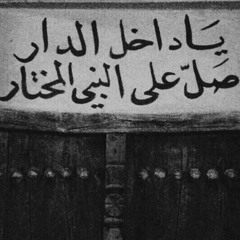 يَا داخل الدار
صَلّ على النبي المختار